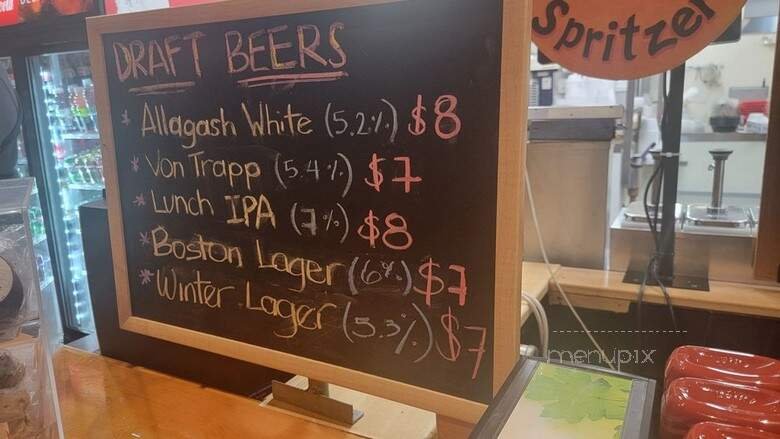 DRAFT BEERS
* Allagash White (5.2%) $8
* Von Trapp (5.4%) $7
* Lunch IPA (7%) $8
* Boston Lager (6%) $7
* Winter Lager (5.3%) $7
Spritzer
menupix